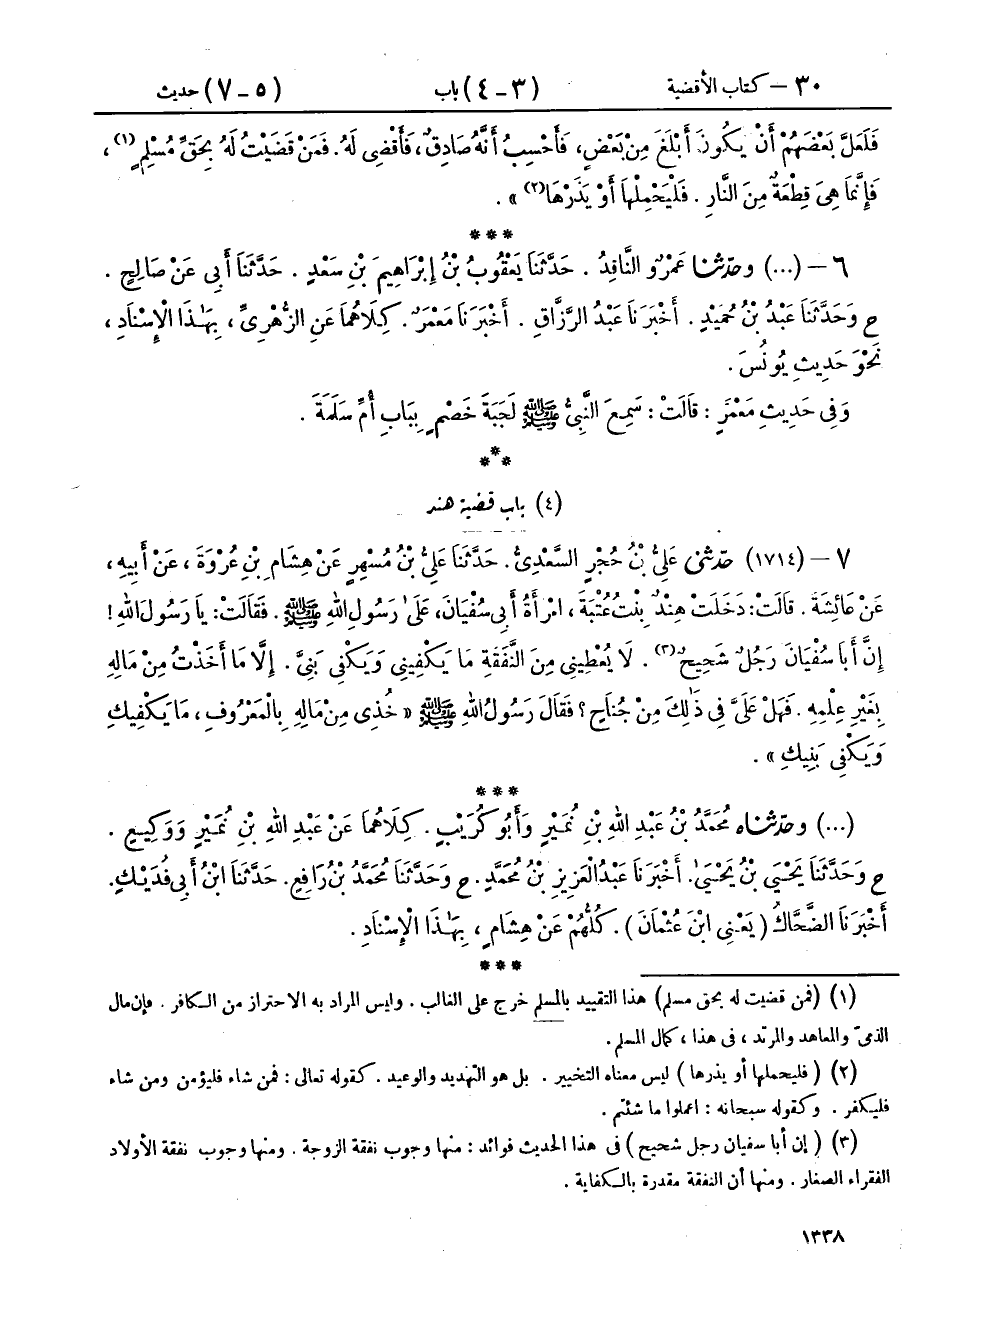 ٣٠ – كتاب الأقضية (٣ – ٤) باب (٥ – ٧) حديث
فَلَعَلَّ بَعْضَهُمْ أَنْ يَكُونَ أَبْلَغَ مِنْ بَعْضٍ، فَأَحْسِبُ أَنَّهُ صَادِقٌ، فَأَقْضِى لَهُ. فَمَنْ قَضَيْتُ لَهُ بِحَقِّ مُسْلِمٍ(١)،
فَإِنَّمَا هِىَ قِطْعَةٌ مِنَ النَّارِ. فَلْيَحْمِلْهَا أَوْ يَذَرْهَا(٢)».
***
٦ – (...) وحدّثنا عَمْرٌو النَّاقِدُ. حَدَّثَنَا يَعْقُوبُ بْنُ إِبْرَاهِيمَ بْنِ سَعْدٍ. حَدَّثَنَا أَبِى عَنْ صَالِحٍ.
ع وَحَدَّثَنَا عَبْدُ بْنُ حُمَيْدٍ. أَخْبَرَنَا عَبْدُ الرَّزَّاقِ. أَخْبَرَنَا مَعْمَرٌ. كِلَاهُمَا عَنِ الزُّهْرِىِّ، بِهَٰذَا الْإِسْنَادِ،
نَحْوَ حَدِيثِ يُونُسَ.
وَفِى حَدِيثِ مَعْمَرٍ: قَالَتْ: سَمِعَ النَّبِىُّ ﷺ لَجَبَةَ خَصْمٍ بِبَابِ أُمِّ سَلَمَةَ.
***
(٤) باب قضية هند
٧ – (١٧١٤) حدّثنى عَلِىُّ بْنُ حُجْرٍ السَّعْدِىُّ. حَدَّثَنَا عَلِىُّ بْنُ مُسْهِرٍ عَنْ هِشَامِ بْنِ عُرْوَةَ، عَنْ أَبِيهِ،
عَنْ عَائِشَةَ. قَالَتْ: دَخَلَتْ هِنْدٌ بِنْتُ عُتْبَةَ، امْرَأَةُ أَبِى سُفْيَانَ، عَلَىٰ رَسُولِ اللهِ ﷺ. فَقَالَتْ: يَا رَسُولَ اللهِ!
إِنَّ أَبَا سُفْيَانَ رَجُلٌ شَحِيحٌ(٣). لَا يُعْطِينِى مِنَ النَّفَقَةِ مَا يَكْفِينِى وَيَكْفِى بَنِىَّ. إِلَّا مَا أَخَذْتُ مِنْ مَالِهِ
بِغَيْرِ عِلْمِهِ. فَهَلْ عَلَىَّ فِى ذَٰلِكَ مِنْ جُنَاحٍ؟ فَقَالَ رَسُولُ اللهِ ﷺ «خُذِى مِنْ مَالِهِ بِالْمَعْرُوفِ، مَا يَكْفِيكِ
وَيَكْفِى بَنِيكِ».
***
(...) وحدّثناه مُحَمَّدُ بْنُ عَبْدِ اللهِ بْنِ نُمَيْرٍ وَأَبُو كُرَيْبٍ. كِلَاهُمَا عَنْ عَبْدِ اللهِ بْنِ نُمَيْرٍ وَوَكِيعٍ.
ع وَحَدَّثَنَا يَحْيَى بْنُ يَحْيَىٰ. أَخْبَرَنَا عَبْدُ الْعَزِيزِ بْنُ مُحَمَّدٍ. ع وَحَدَّثَنَا مُحَمَّدُ بْنُ رَافِعٍ. حَدَّثَنَا ابْنُ أَبِى فُدَيْكٍ.
أَخْبَرَنَا الضَّحَّاكُ (يَعْنِى ابْنَ عُثْمَانَ). كُلُّهُمْ عَنْ هِشَامٍ، بِهَٰذَا الْإِسْنَادِ.
***
(١) (فمن قضيت له بحق مسلم) هذا التقييد بالمسلم خرج على الغالب. وليس المراد به الاحتراز من الكافر. فإن مال
الذمىّ والمعاهد والمرتد، فى هذا، كمال المسلم.
(٢) (فليحملها أو يذرها) ليس معناه التخيير. بل هو التهديد والوعيد. كقوله تعالى: فمن شاء فليؤمن ومن شاء
فليكفر. وكقوله سبحانه: اعملوا ما شئتم.
(٣) (إن أبا سفيان رجل شحيح) فى هذا الحديث فوائد: منها وجوب نفقة الزوجة. ومنها وجوب نفقة الأولاد
الفقراء الصغار. ومنها أن النفقة مقدرة بالكفاية.
١٣٣٨